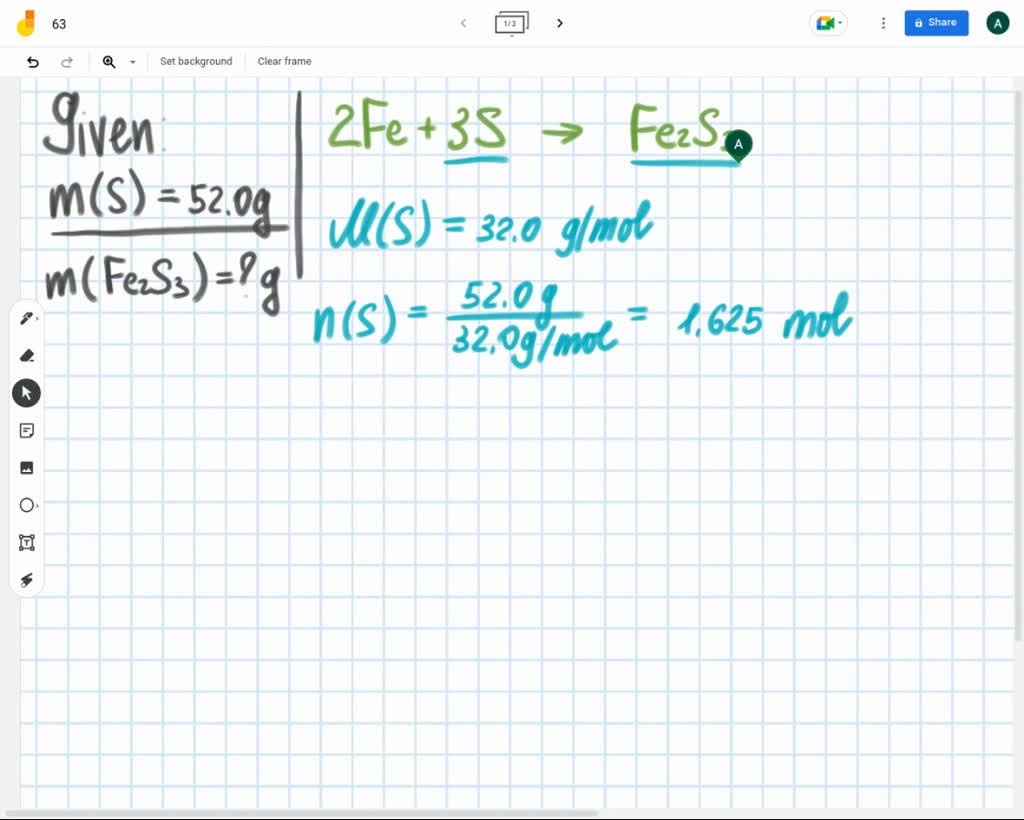 63
1/3
Share
A
Set background
Clear frame
Given:
m(S) = 52.0g
m(Fe₂S₃) = ? g
2Fe + 3S → Fe₂S₃
A
M(S) = 32.0 g/mol
n(S) = 52.0 g / 32.0 g/mol = 1.625 mol
T